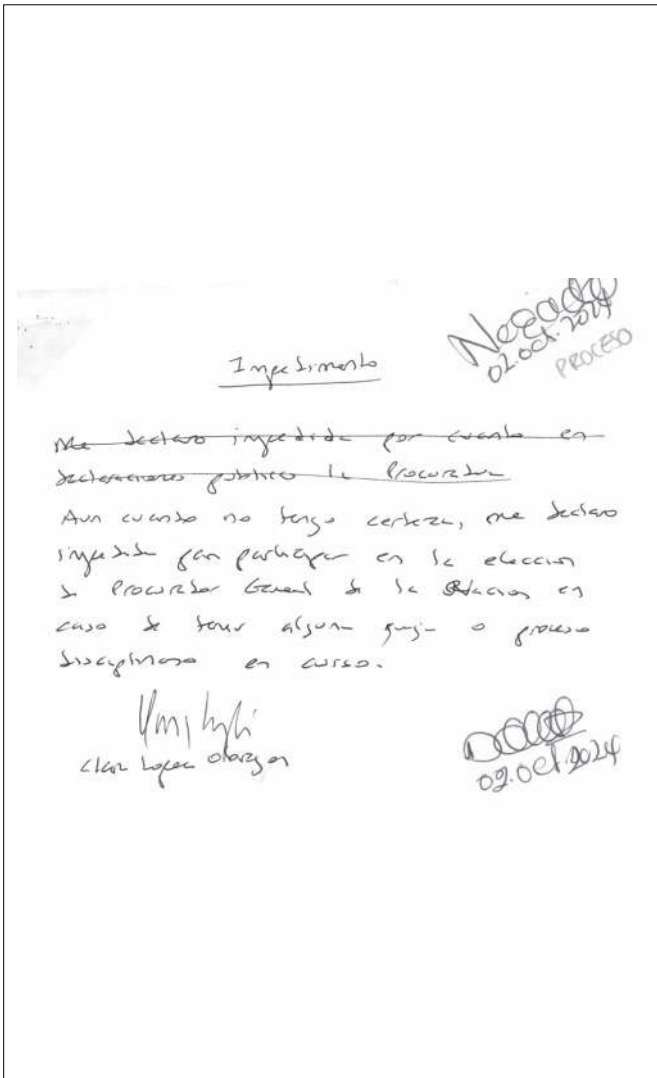 Negado
02.oct.2024
PROCESO
Impedimento
Me declaro impedida por cuanto en
declaraciones públicas la Procuradora
Aun cuando no tengo certeza, me declaro
impedida para participar en la elección
de Procurador General de la Nación en
caso de tener alguna queja o proceso
disciplinario en curso.
Clara López Obregón
02.Oct.2024